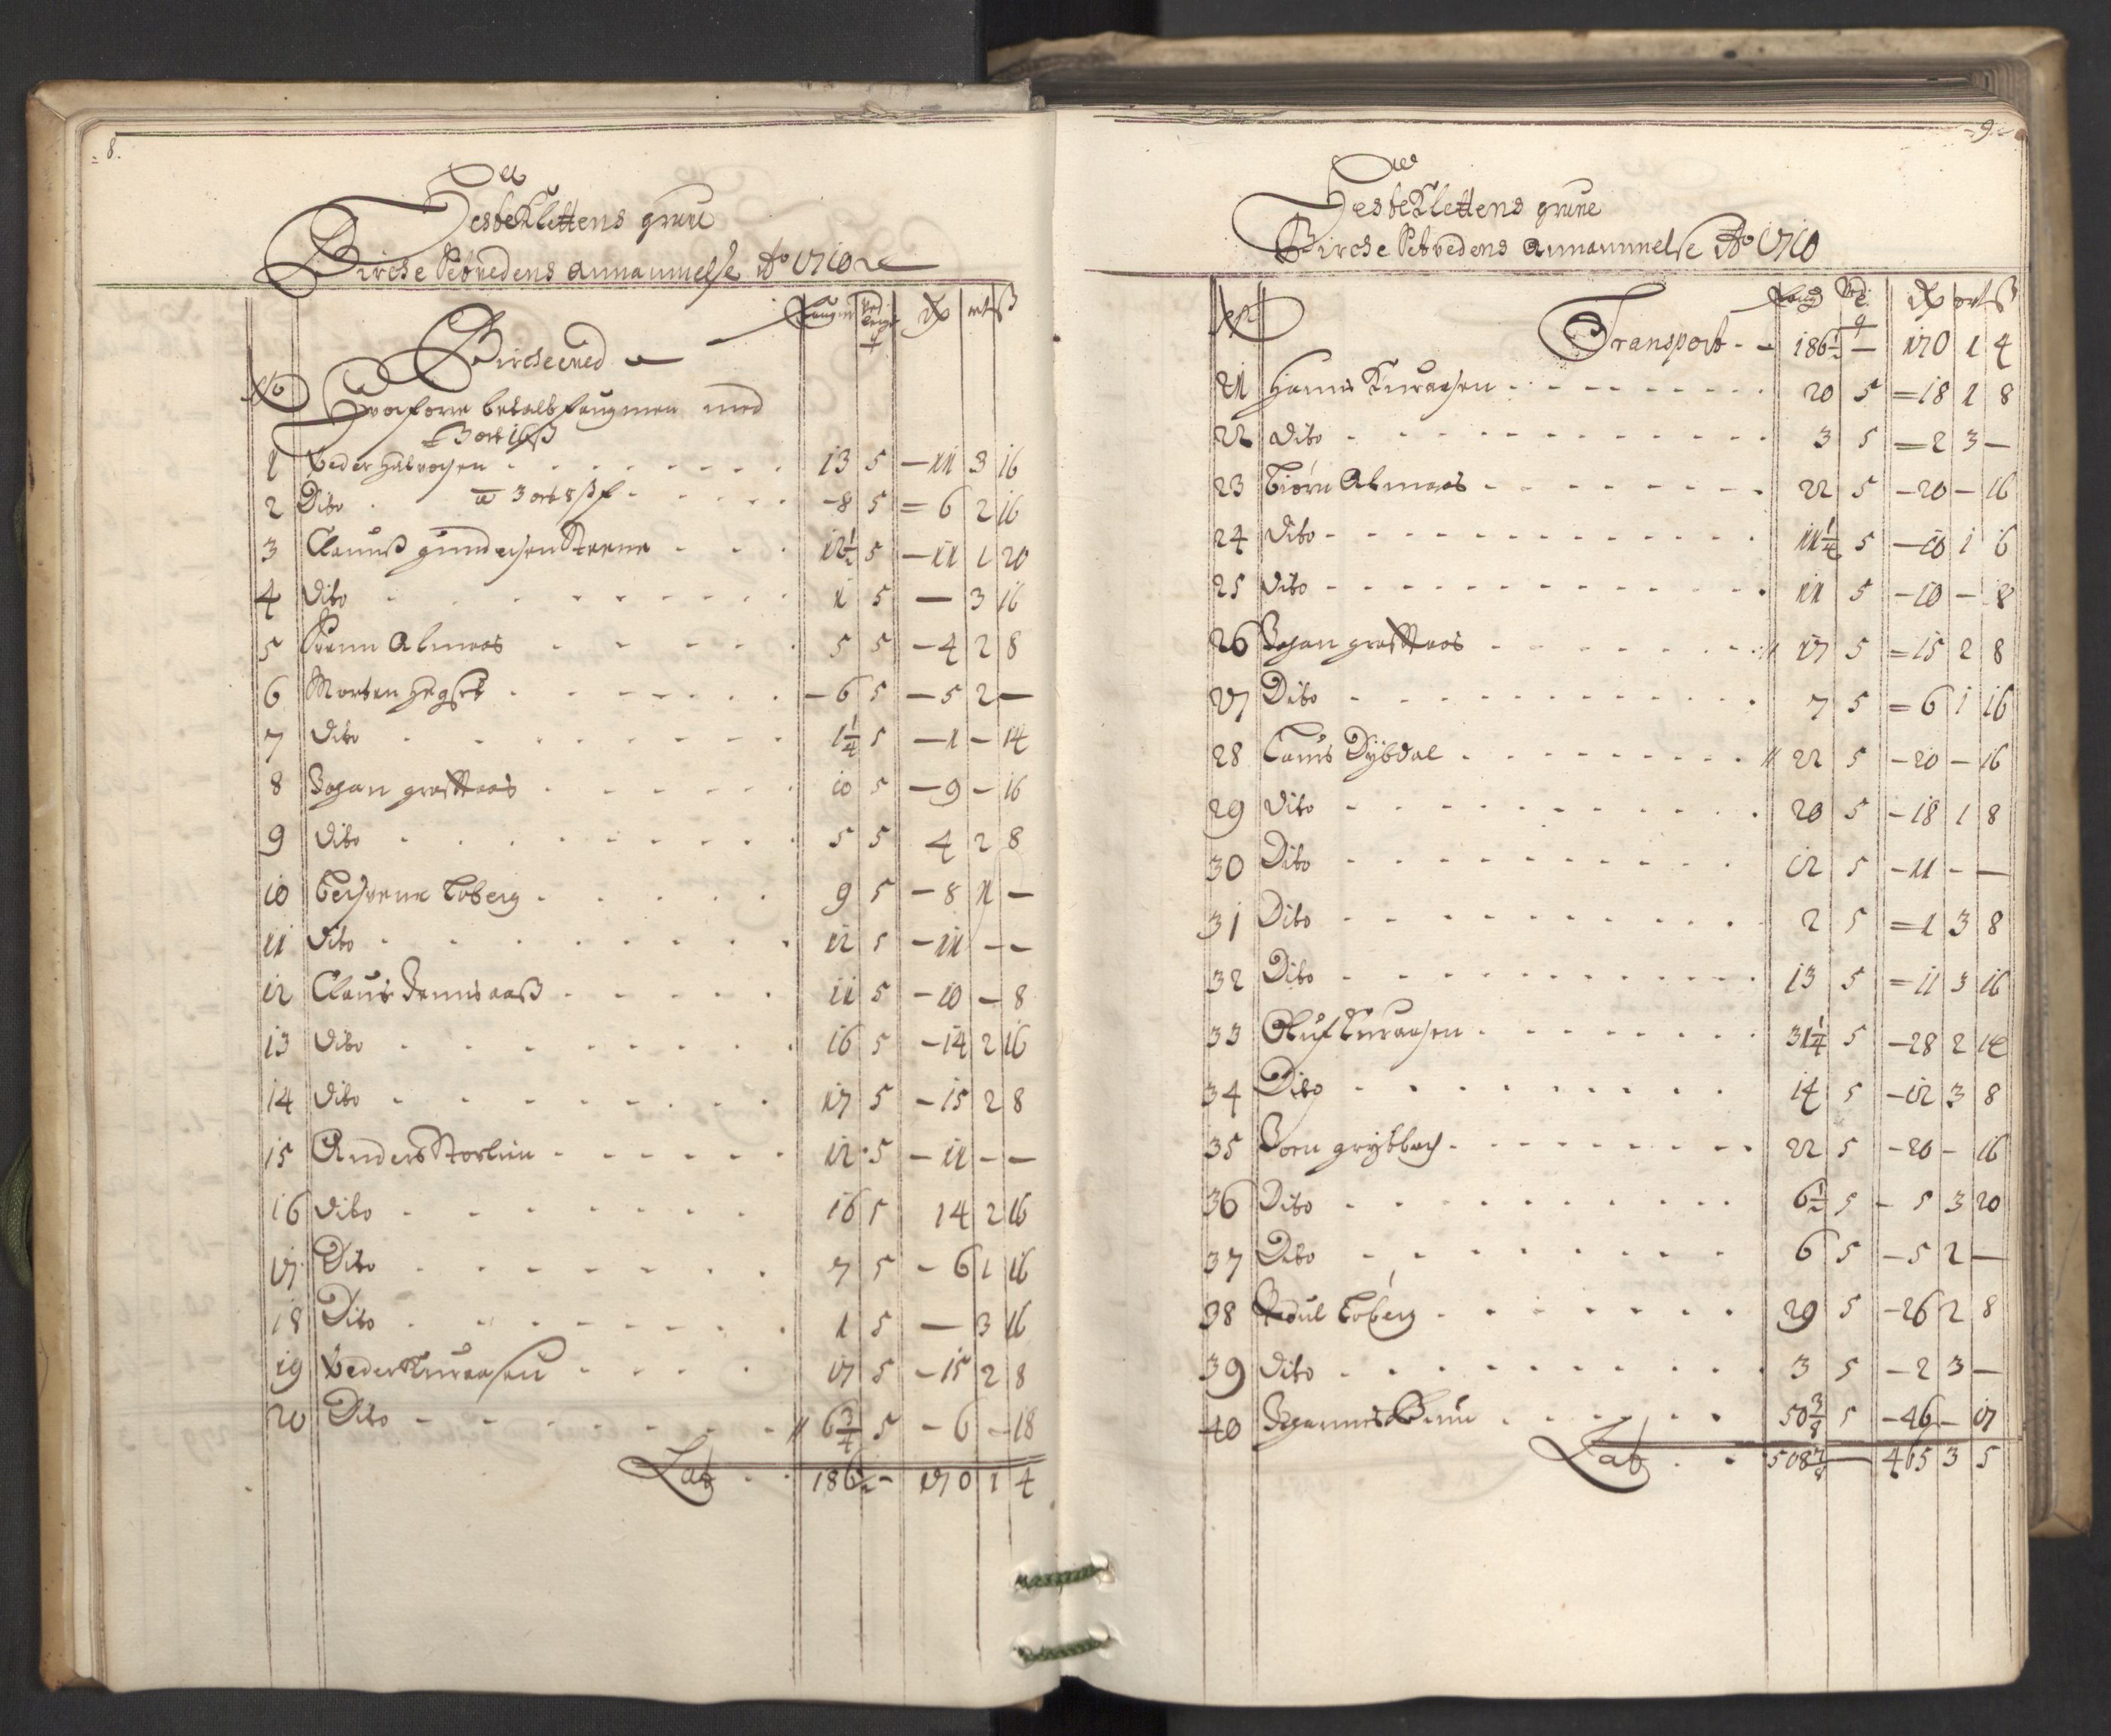 8.
Hesteklettens grue
Bircke Setvedens annammelse Ao 1710
Faugner Ved lengt Rdr ort ß
Bircheved
No Hvorforre betalt faugnen med
3 ort 16 ß
1 Peder Halvorsen 13 5 – 11 3 16
2 Dito a 3 ort 8 ß f – 8 5 = 6 2 16
3 Clauus gundersen Steene 12½ 5 – 11 1 20
4 Dito 1 5 — 3 16
5 Svenn Almaas 5 5 – 4 2 8
6 Morten Hegset – 6 5 – 5 2 —
7 Dito 1¼ 5 – 1 – 14
8 Johan graffteraas 10 5 – 9 – 16
9 Dito 5 5 4 2 8
10 Toberg 9 5 – 8 1 —
11 Dito 12 5 – 11 – –
12 Claus 11 5 – 10 – 8
13 Dito 16 5 – 14 2 16
14 Dito 17 5 – 15 2 8
15 Anders Storlien 12 5 – 11 – –
16 Dito 16 5 14 2 16
17 Dito 7 5 – 6 1 16
18 Dito 1 5 — 3 16
19 Peder Knudsen 17 5 – 15 2 8
20 Dito 6¾ 5 – 6 – 18
Lat 186½ – 170 1 4
9
Hesteklettens grune
Bircke Setvedens annammelse Ao 1710
No Faug Ved: l: Rdr ort ß
Transport 186½ — 170 1 4
21 Hanns Knudsen 20 5 = 18 1 8
22 Dito 3 5 = 2 3 –
23 Biørn Almaas 22 5 – 20 – 16
24 Dito 11¼ 5 – 10 1 6
25 Dito 11 5 – 10 – 8
26 Johan graffteraas 17 5 = 15 2 8
27 Dito 7 5 = 6 1 16
28 Claus Dybdal 22 5 – 20 – 16
29 Dito 20 5 – 18 1 8
30 Dito 12 5 – 11 – —
31 Dito 2 5 = 1 3 8
32 Dito 13 5 = 11 3 16
33 Oluf Knudsen 31¼ 5 – 28 2 14
34 Dito 14 5 – 12 3 8
35 Jorn grytbach 22 5 – 20 – 16
36 Dito 6½ 5 – 5 3 20
37 Dito 6 5 – 5 2 —
38 Poul Toberg 29 5 – 26 2 8
39 Dito 3 5 – 2 3 —
40 Johannes 50⅜ 5 – 46 – 17
Lat 508⅞ — 465 3 5